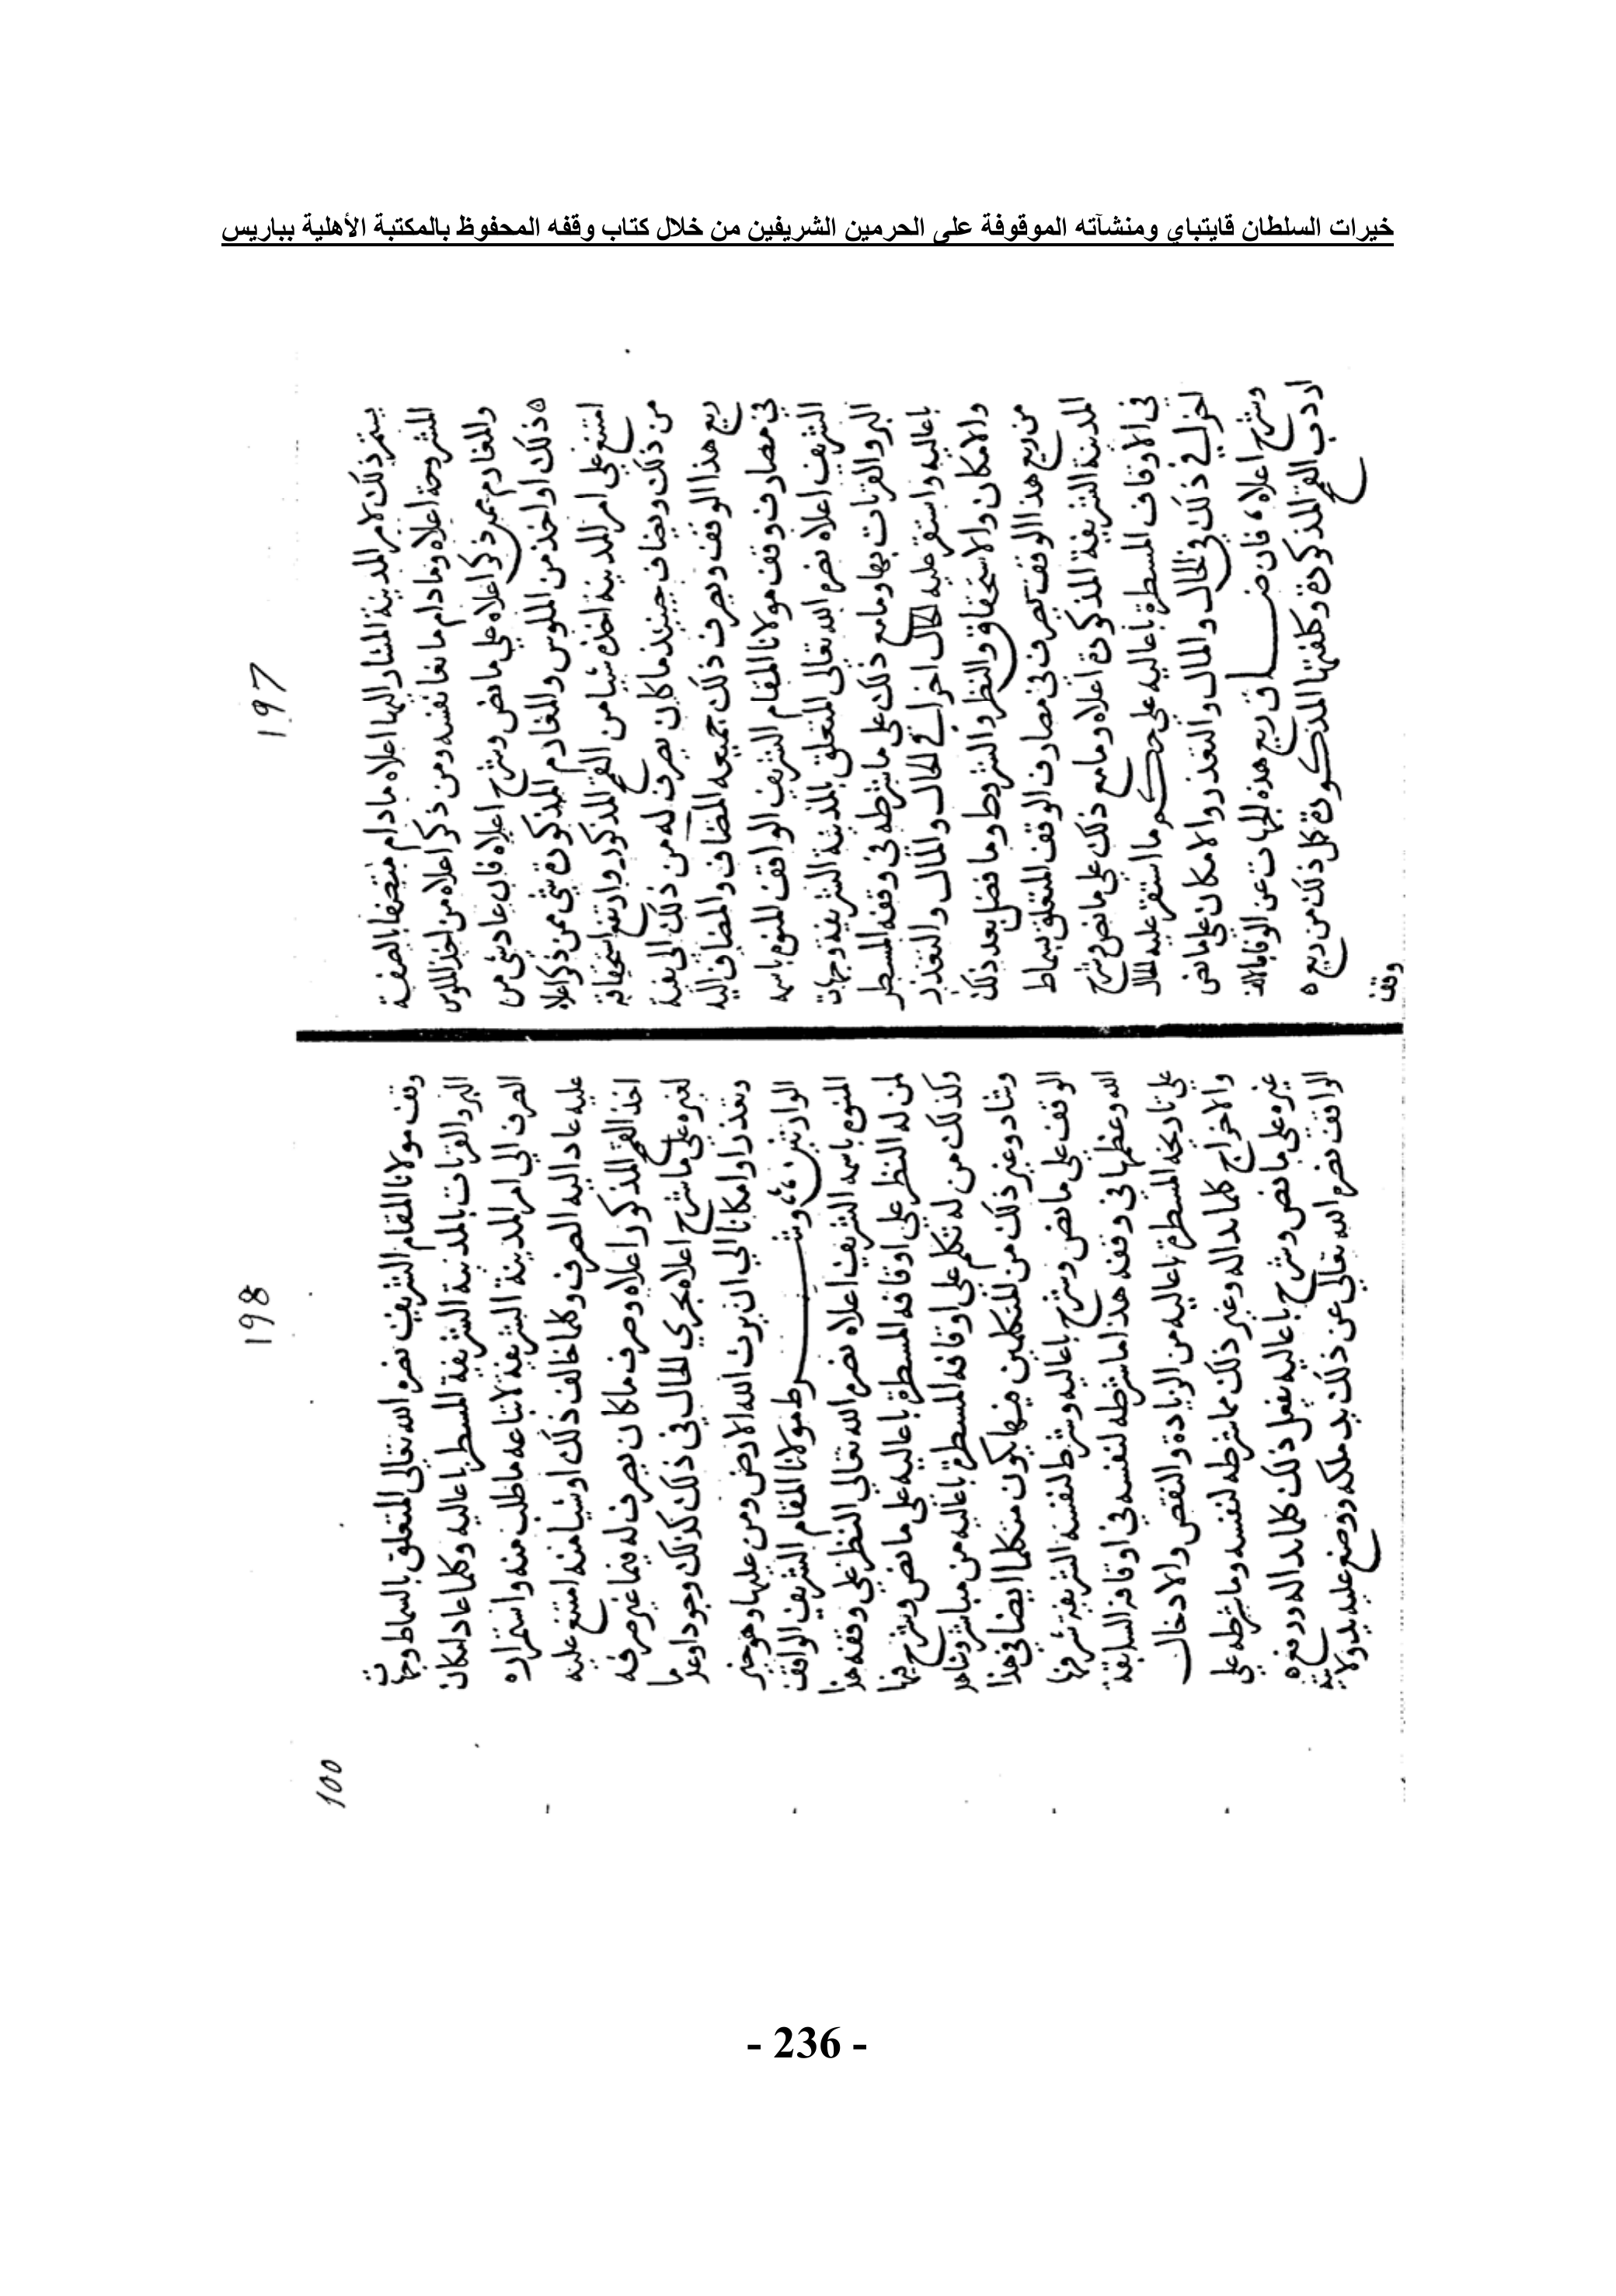 خيرات السلطان قايتباي ومنشآته الموقوفة على الحرمين الشريفين من خلال كتاب وقفه المحفوظ بالمكتبة الأهلية بباريس
197
يستمر ذلك لامير المدينة المشار اليها اعلاه مادام متصفا بالصفة
المشروحة اعلاه ومادام مانعا نفسه ومن ذكر اعلاه من اخذ المكوس
والمغارم ممن ذكر اعلاه علي ما نص وشرح اعلاه فان عاد شي من
ذلك او اخذ من المكوس والمغارم المذكورة شي ممن ذكر اعلاه
امتنع علي امير المدينة اخذ شيا من القمح المذكور وارتفع استحقاقه
من ذلك ويضاف حينيذ ما كان يصرف له من ذلك الى بقية
ريع هذا الوقف ويصرف ذلك جميعه المضاف والمضاف اليه
في مصارف وقف مولانا المقام الشريف الواقف المنوه باسمه
الشريف اعلاه نصره الله تعالى المتعلق بالمدينة الشريفة وجهات
البر والقربات بها وما مع ذلك على ما شرطه في وقفه المسطر
باعاليه واستقر عليه الحال اخرا في الحال والمآل والتعذر
والامكان والاستحقاق والنظر والشروط وما فضل بعد ذلك
من ريع هذا الوقف يصرف في مصارف الوقف المتعلق بسماط
المدينة الشريفة المذكورة اعلاه وما مع ذلك علي ما نص وشرح
في الاوقاف المسطرة باعاليه علي حكم ما استقر عليه الحال
اخرا في ذلك في الحال والمال والتعذر والامكان علي ما نص
وشرح اعلاه فان ضاق ريع هذه الجهات عن الوفا بالالف
اردب القمح المذكورة وكلفتها المذكورة كمل ذلك من ريع
وقف
198
وقف مولانا المقام الشريف نصره الله تعالى المتعلق بالسماط وجهات
البر والقربات بالمدينة الشريفة المسطر باعاليه وكلما عاد امكان
الصرف الي امير المدينة الشريفة لاتباعه ما طلب منه واستمراره
عليه عاد اليه الصرف وكلما خالف ذلك او شيا منه امتنع عليه
اخذ القمح المذكور اعلاه وصرف ما كان يصرف له فيما عين صرفه
لغيره علي ما شرح اعلاه يجري الحال في ذلك كذلك وجودا وعدما
وتعذرا وامكانا الي ان يرث الله الارض ومن عليها وهو خير
الوارثين وشرط مولانا المقام الشريف الواقف
المنوه باسمه الشريف اعلاه نصره الله تعالي النظر علي وقفه هذا
لمن له النظر علي اوقافه المسطرة باعاليه على ما نص وشرح فيها
وكذلك من له تكلم علي اوقافه المسطرة باعاليه من مباشر وشاهد
وشاد وغير ذلك من المتكلمين فيها يكون متكلما ايضا في هذا
الوقف على ما نص وشرح باعاليه وشرط لنفسه الشريفة شرفها
الله وعظمها في وقفه هذا ما شرطه لنفسه في اوقافه السابقة
علي تاريخه المسطرة باعاليه من الزيادة والنقص والادخال
والاخراج كلما بدا له وغير ذلك مما شرطه لنفسه وما شرطه علي
غيره على ما نص وشرح باعاليه يفعل ذلك كلما بدا له ورفع
الواقف نصره الله تعالي عن ذلك يد ملكه ووضع عليه يد ولاية
100
- 236 -